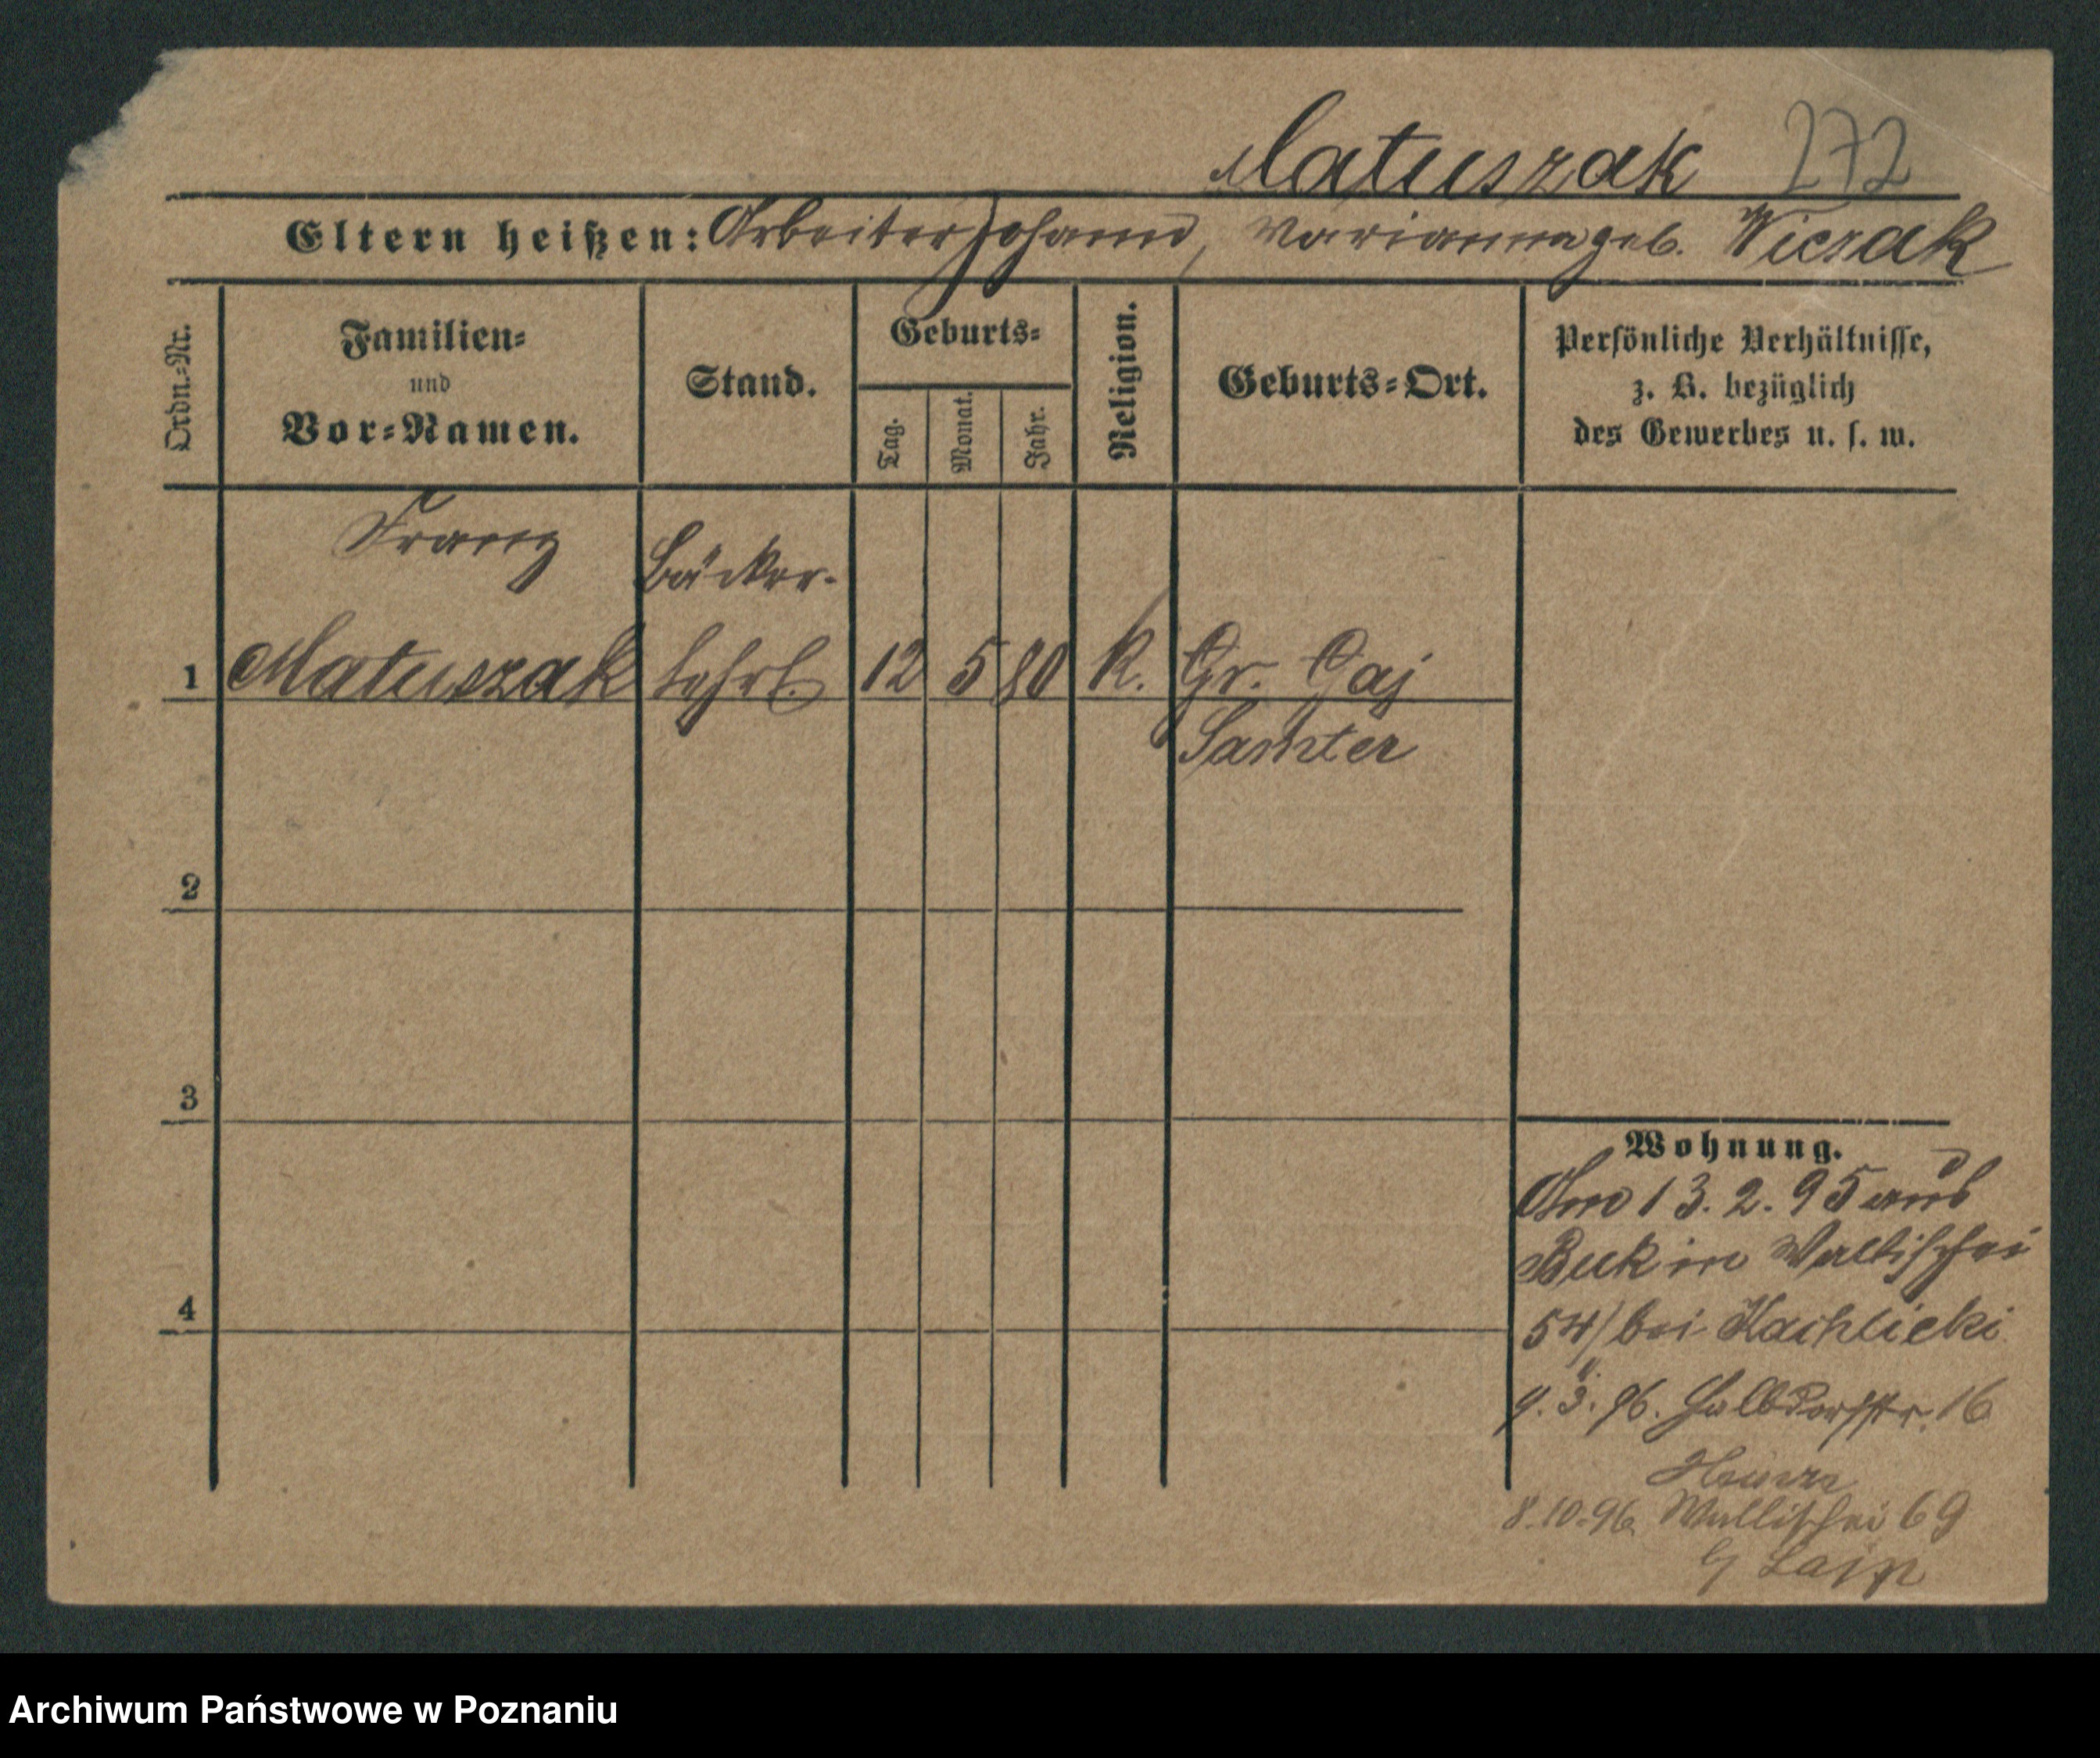 Matuszak 272
Eltern heißen: Arbeiter Johann, Marianna geb. Wiczak
Ordn.-Nr.
Familien-
und
Vor-Namen.
Stand.
Geburts-
Tag.
Monat.
Jahr.
Religion.
Geburts-Ort.
Persönliche Verhältnisse,
z. B. bezüglich
des Gewerbes u. s. w.
Franz
Bäcker-
1 Matuszak Lehrl. 12 5 80 K. Gr. Gaj
Samter
2
3
4
Wohnung.
Am 13. 2. 95 aus
Buk in Wallischei
54/ bei Kachlicki
9. 3. 96. Halbdorfstr. 16
8.10.96. Wallischei 69
Archiwum Państwowe w Poznaniu